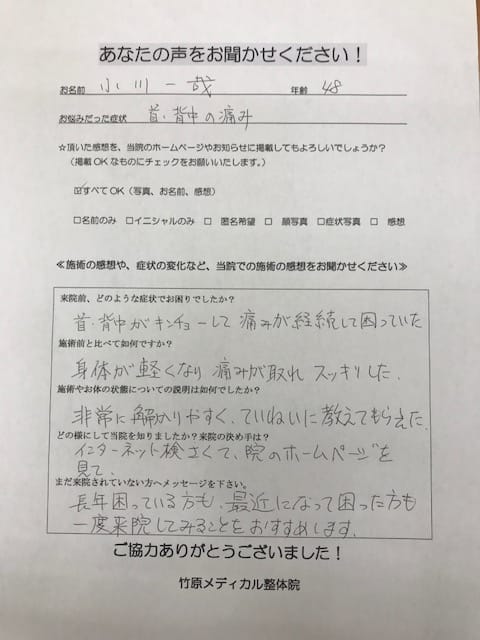 あなたの声をお聞かせください！
お名前 小川一哉 年齢 48
お悩みだった症状 首・背中の痛み
☆頂いた感想を、当院のホームページやお知らせに掲載してもよろしいでしょうか？
（掲載OKなものにチェックをお願いいたします。）
☑すべてOK（写真、お名前、感想）
□名前のみ □イニシャルのみ □ 匿名希望 □ 顔写真 □症状写真 □ 感想
≪施術の感想や、症状の変化など、当院での施術の感想をお聞かせください≫
来院前、どのような症状でお困りでしたか？
首・背中がキンチョーして 痛みが継続して困っていた
施術前と比べて如何ですか？
身体が軽くなり 痛みが取れ スッキリした。
施術やお体の状態についての説明は如何でしたか？
非常に解かりやすく、ていねいに教えてもらえた。
どの様にして当院を知りましたか？来院の決め手は？
インターネット検さくて、院のホームページを
見て、
まだ来院されていない方へメッセージを下さい。
長年困っている方も、最近になって困った方も
一度来院してみることをおすすめします。
ご協力ありがとうございました！
竹原メディカル整体院